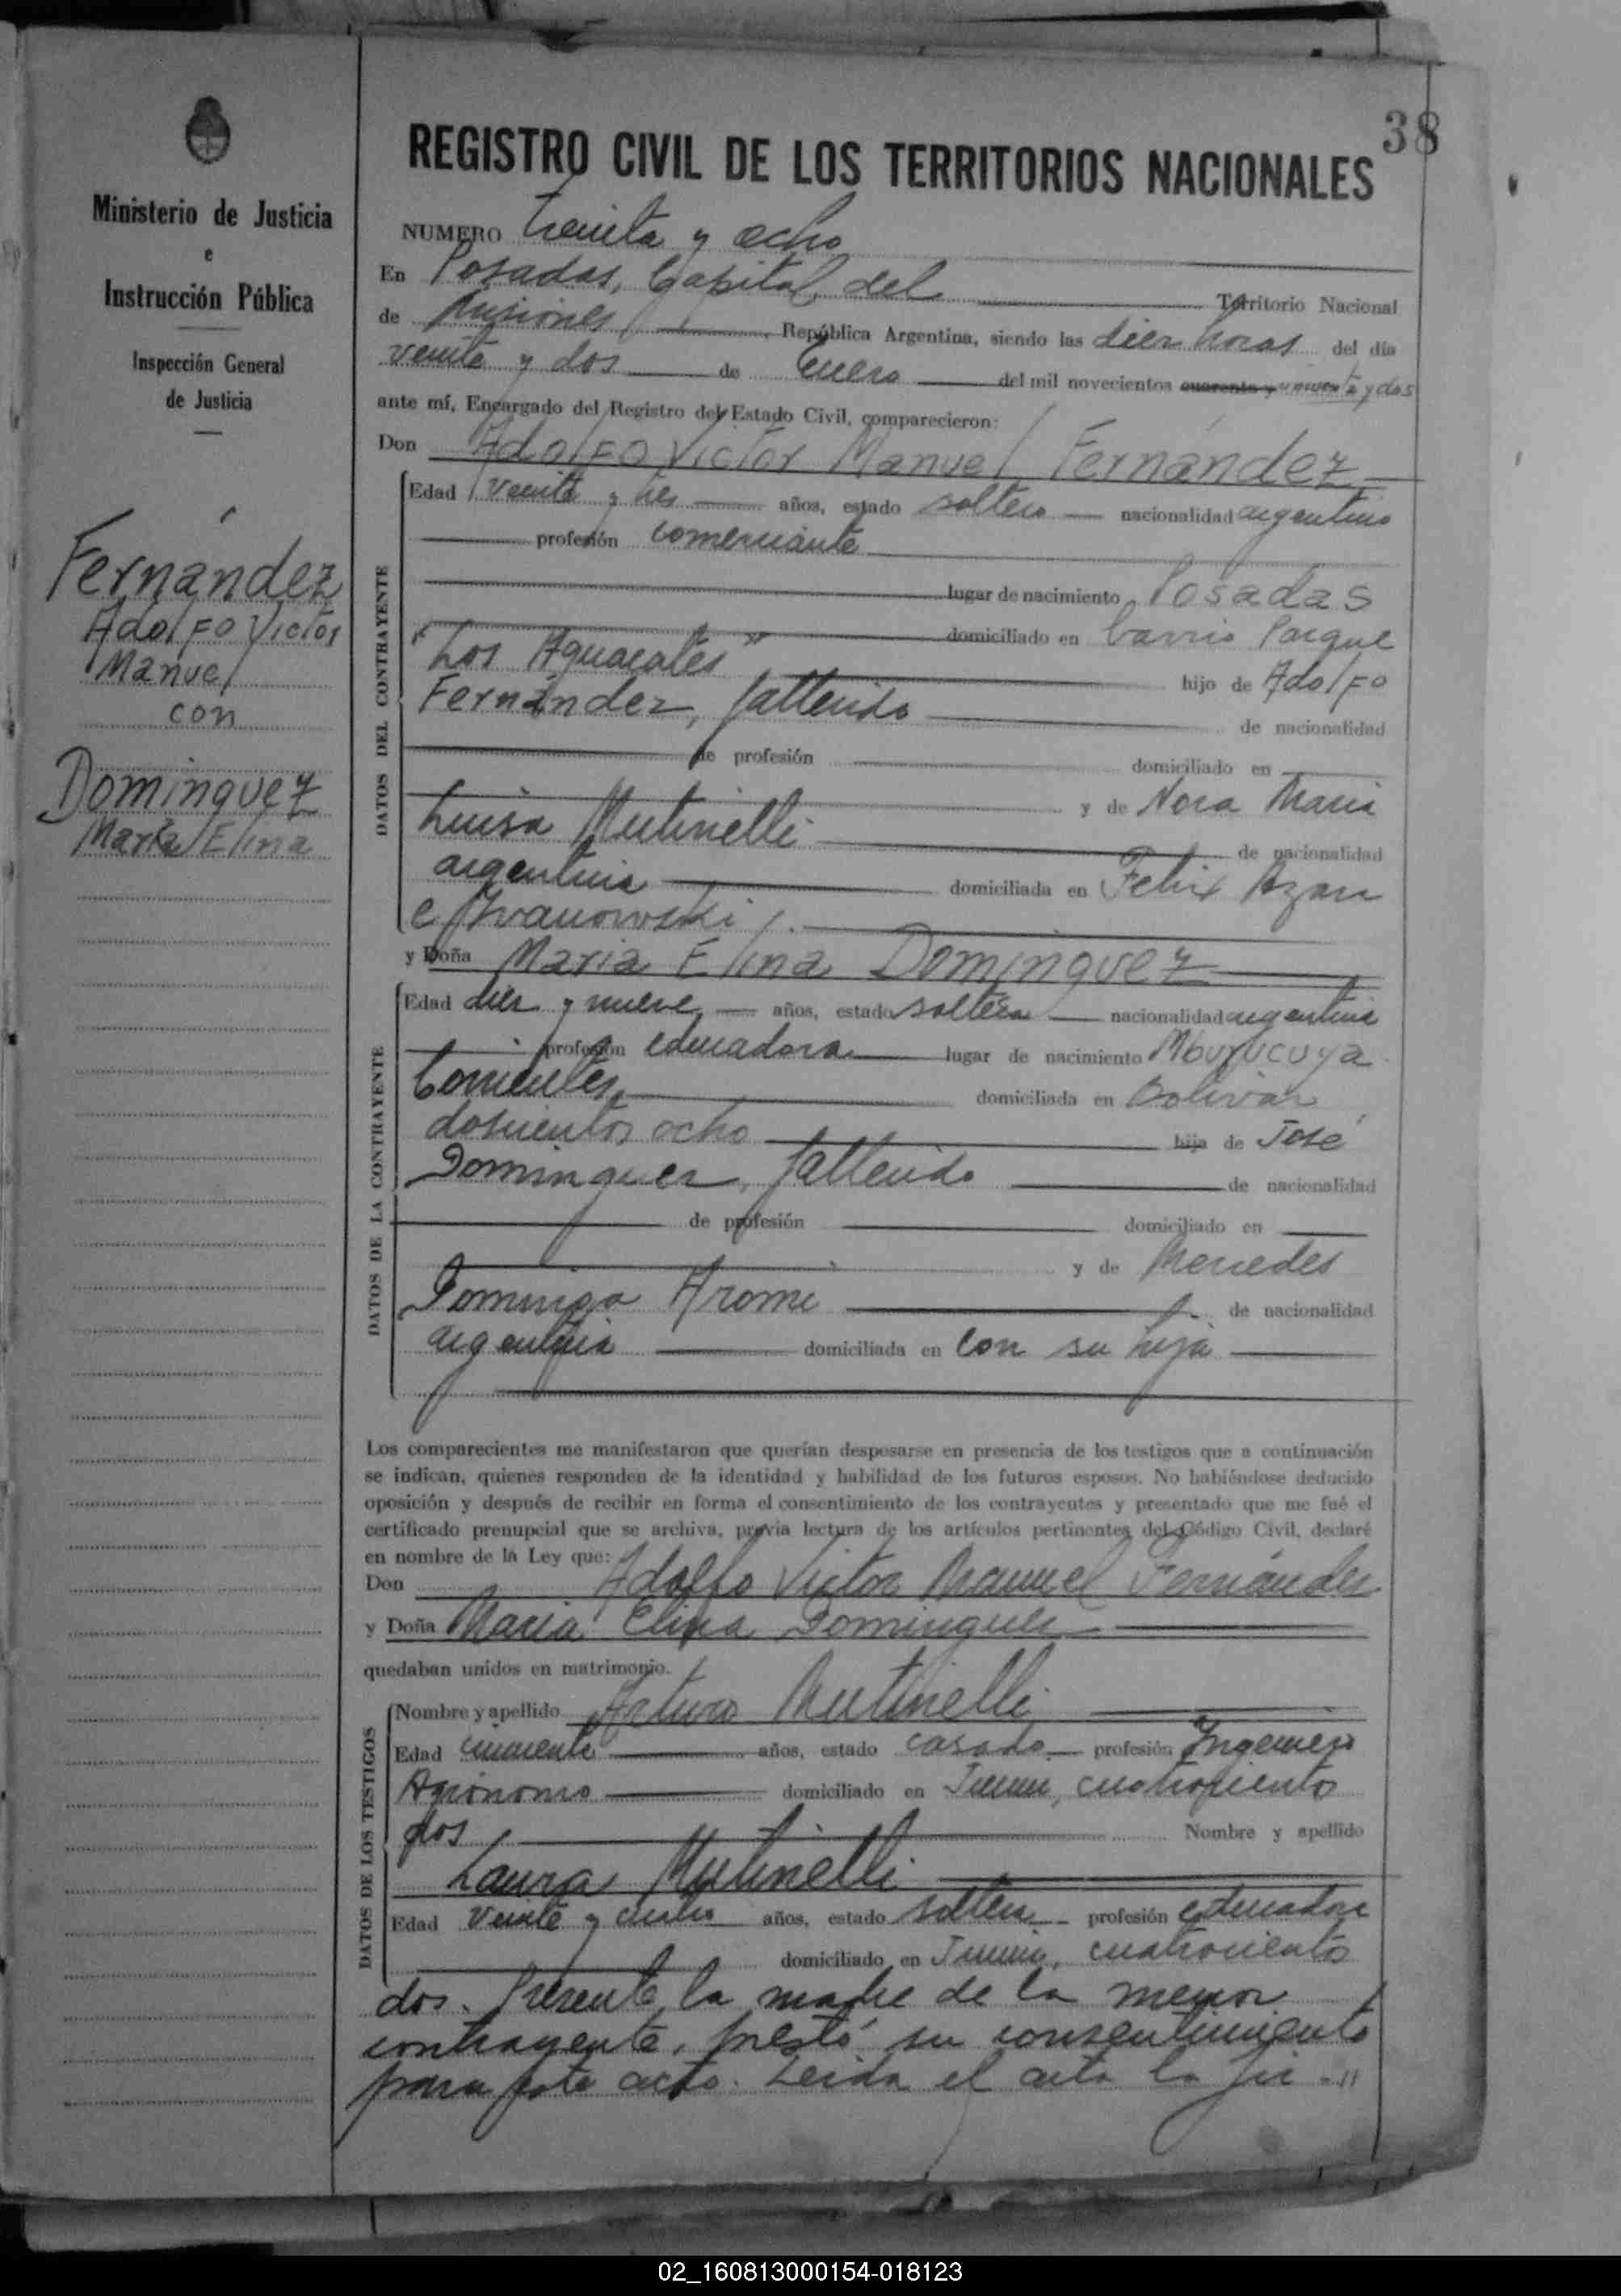 38
Ministerio de Justicia
e
Instrucción Pública
Inspección General
de Justicia
Fernández
Adolfo Victor
Manuel
con
Dominguez
María Elina
REGISTRO CIVIL DE LOS TERRITORIOS NACIONALES
NUMERO treinta y ocho
En Posadas, Capital del Territorio Nacional
de Misiones, República Argentina, siendo las diez horas del día
veinte y dos de Enero del mil novecientos cuarenta y cincuenta y dos
ante mí, Encargado del Registro del Estado Civil, comparecieron:
Don Adolfo Victor Manuel Fernández
DATOS DEL CONTRAYENTE
Edad veinte y tres años, estado soltero nacionalidad argentino
profesión comerciante
lugar de nacimiento Posadas
domiciliado en barrio Parque
"Los Aguacates" hijo de Adolfo
Fernández, fallecido de nacionalidad
de profesión domiciliado en
y de Nora María
Luisa Mutinelli de nacionalidad
argentina domiciliada en Felix Azara
e Iwanowski
y Doña Maria Elina Dominguez
DATOS DE LA CONTRAYENTE
Edad diez y nueve años, estado soltera nacionalidad argentina
profesión educadora lugar de nacimiento Mburucuya
Corrientes domiciliada en Bolivar
doscientos ocho hija de José
Dominguez, fallecido de nacionalidad
de profesión domiciliado en
y de Mercedes
Dominga Aromi de nacionalidad
argentina domiciliada en con su hija
Los comparecientes me manifestaron que querían desposarse en presencia de los testigos que a continuación
se indican, quienes responden de la identidad y habilidad de los futuros esposos. No habiéndose deducido
oposición y después de recibir en forma el consentimiento de los contrayentes y presentado que me fué el
certificado prenupcial que se archiva, previa lectura de los artículos pertinentes del Código Civil, declaré
en nombre de la Ley que:
Don Adolfo Victor Manuel Fernández
y Doña Maria Elina Dominguez
quedaban unidos en matrimonio.
DATOS DE LOS TESTIGOS
Nombre y apellido Arturo Mutinelli
Edad cincuenta años, estado casado profesión Ingeniero
Agrónomo domiciliado en Junin, cuatrocientos
dos Nombre y apellido
Laura Mutinelli
Edad veinte y cuatro años, estado soltera profesión educadora
domiciliado en Junin, cuatrocientos
dos. Presente la madre de la menor
contrayente, prestó su consentimiento
para este acto. Leida el acta la fir-"
02_160813000154-018123